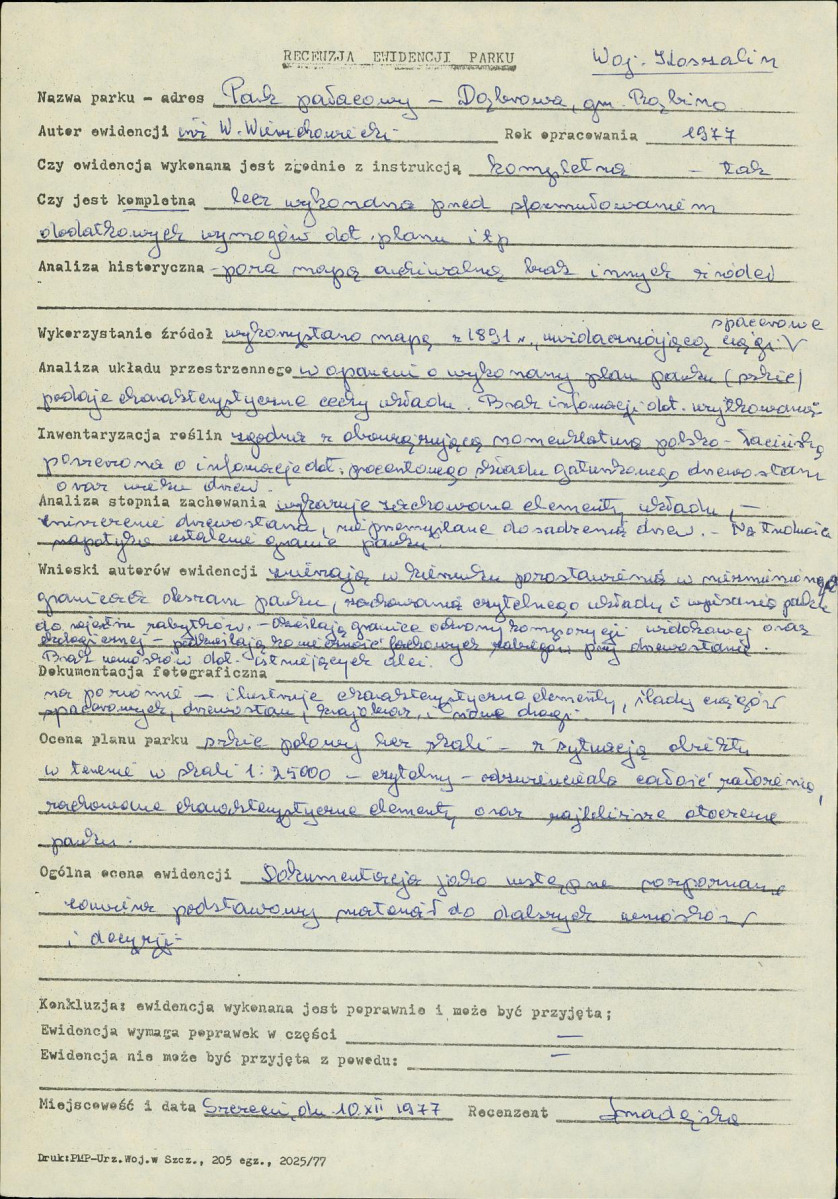 RECENZJA EWIDENCJI PARKU Woj. Koszalin
Nazwa parku - adres Park pałacowy - Dąbrowa, gm. Rąbino
Autor ewidencji inż W. Wierzchowiecki Rok opracowania 1977
Czy ewidencja wykonana jest zgodnie z instrukcją kompletna - tak
Czy jest kompletna lecz wykonana przed sformułowaniem
dodatkowych wymogów dot. planu itp
Analiza historyczna - poza mapą archiwalną brak innych źródeł
Wykorzystanie źródeł wykorzystano mapę z 1891 r., uwidaczniającą ciągi spacerowe
Analiza układu przestrzennego w oparciu o wykonany plan parku (szkic)
podaje charakterystyczne cechy układu. Brak informacji dot. użytkowania
Inwentaryzacja roślin zgodna z obowiązującą nomenklaturą polsko-łacińską
poszerzona o informacje dot. procentowego składu gatunkowego drzewostanu
oraz wieku drzew.
Analiza stopnia zachowania wykazuje zachowane elementy układu, -
zniszczenie drzewostanu, nieprzemyślane dosadzenia drzew. - Na trudności
napotyka ustalenie granic parku.
Wnioski autorów ewidencji zmierzają w kierunku pozostawienia w niezmienionych
granicach obszaru parku, zachowania czytelnego układu i wpisania parku
do rejestru zabytków. - Określają granice ochrony kompozycji widokowej oraz
ekologicznej - podkreślają konieczność fachowych zabiegów przy drzewostanie.
Brak wniosków dot. istniejących alei.
Dokumentacja fotograficzna
na poziomie - ilustruje charakterystyczne elementy, ślady ciągów
spacerowych, drzewostan, krajobraz, i nowe drogi
Ocena planu parku szkic polowy bez skali - z sytuacją obiektu
w terenie w skali 1:25000 - czytelny - odzwierciedla całość założenia,
zachowane charakterystyczne elementy oraz najbliższe otoczenie
parku.
Ogólna ocena ewidencji Dokumentacja jako wstępne rozpoznanie
zawiera podstawowy materiał do dalszych wniosków
i decyzji
Konkluzja: ewidencja wykonana jest poprawnie i może być przyjęta;
Ewidencja wymaga poprawek w części =
Ewidencja nie może być przyjęta z powodu: =
Miejscowość i data Szczecin, dn 10.XII 1977 Recenzent
Druk:PMP-Urz.Woj.w Szcz., 205 egz., 2025/77